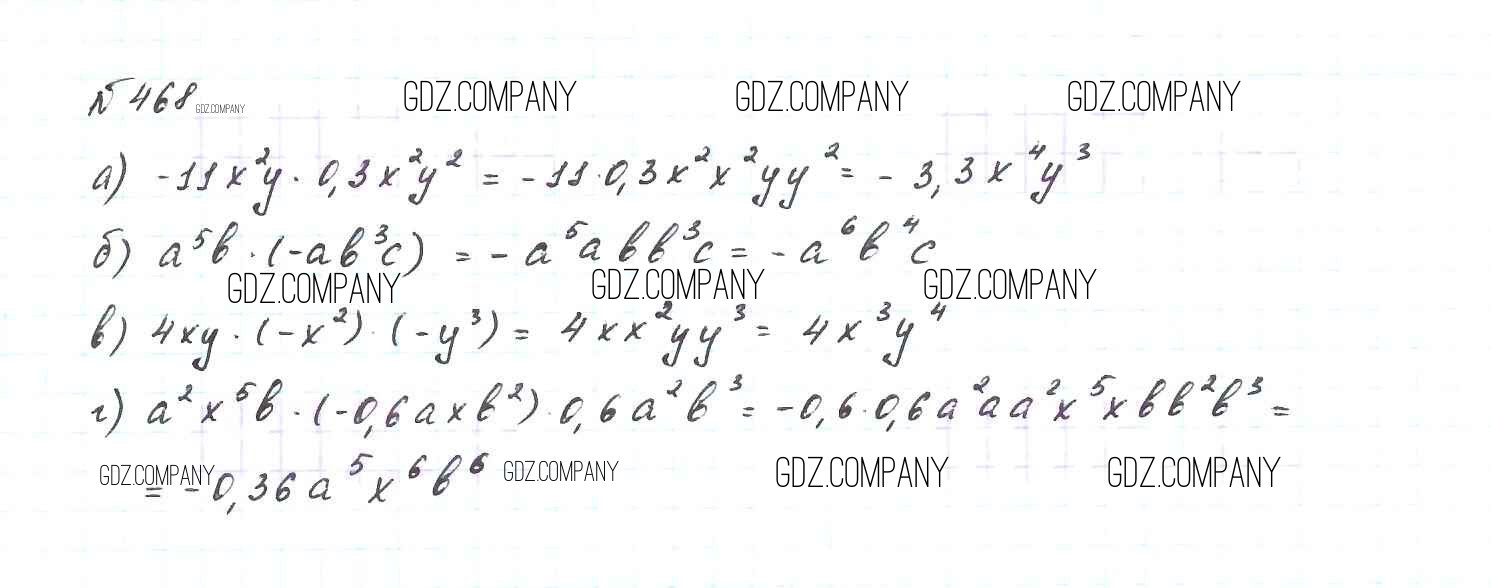 № 468 GDZ.COMPANY GDZ.COMPANY GDZ.COMPANY GDZ.COMPANY
а) -11x²y · 0,3x²y² = -11·0,3x²x²yy² = -3,3x⁴y³
б) a⁵b · (-ab³c) = -a⁵abb³c = -a⁶b⁴c
GDZ.COMPANY GDZ.COMPANY GDZ.COMPANY
в) 4xy · (-x²) · (-y³) = 4xx²yy³ = 4x³y⁴
г) a²x⁵b · (-0,6axb²) · 0,6a²b³ = -0,6·0,6a²aa²x⁵xbb²b³ =
GDZ.COMPANY GDZ.COMPANY GDZ.COMPANY GDZ.COMPANY
= -0,36a⁵x⁶b⁶